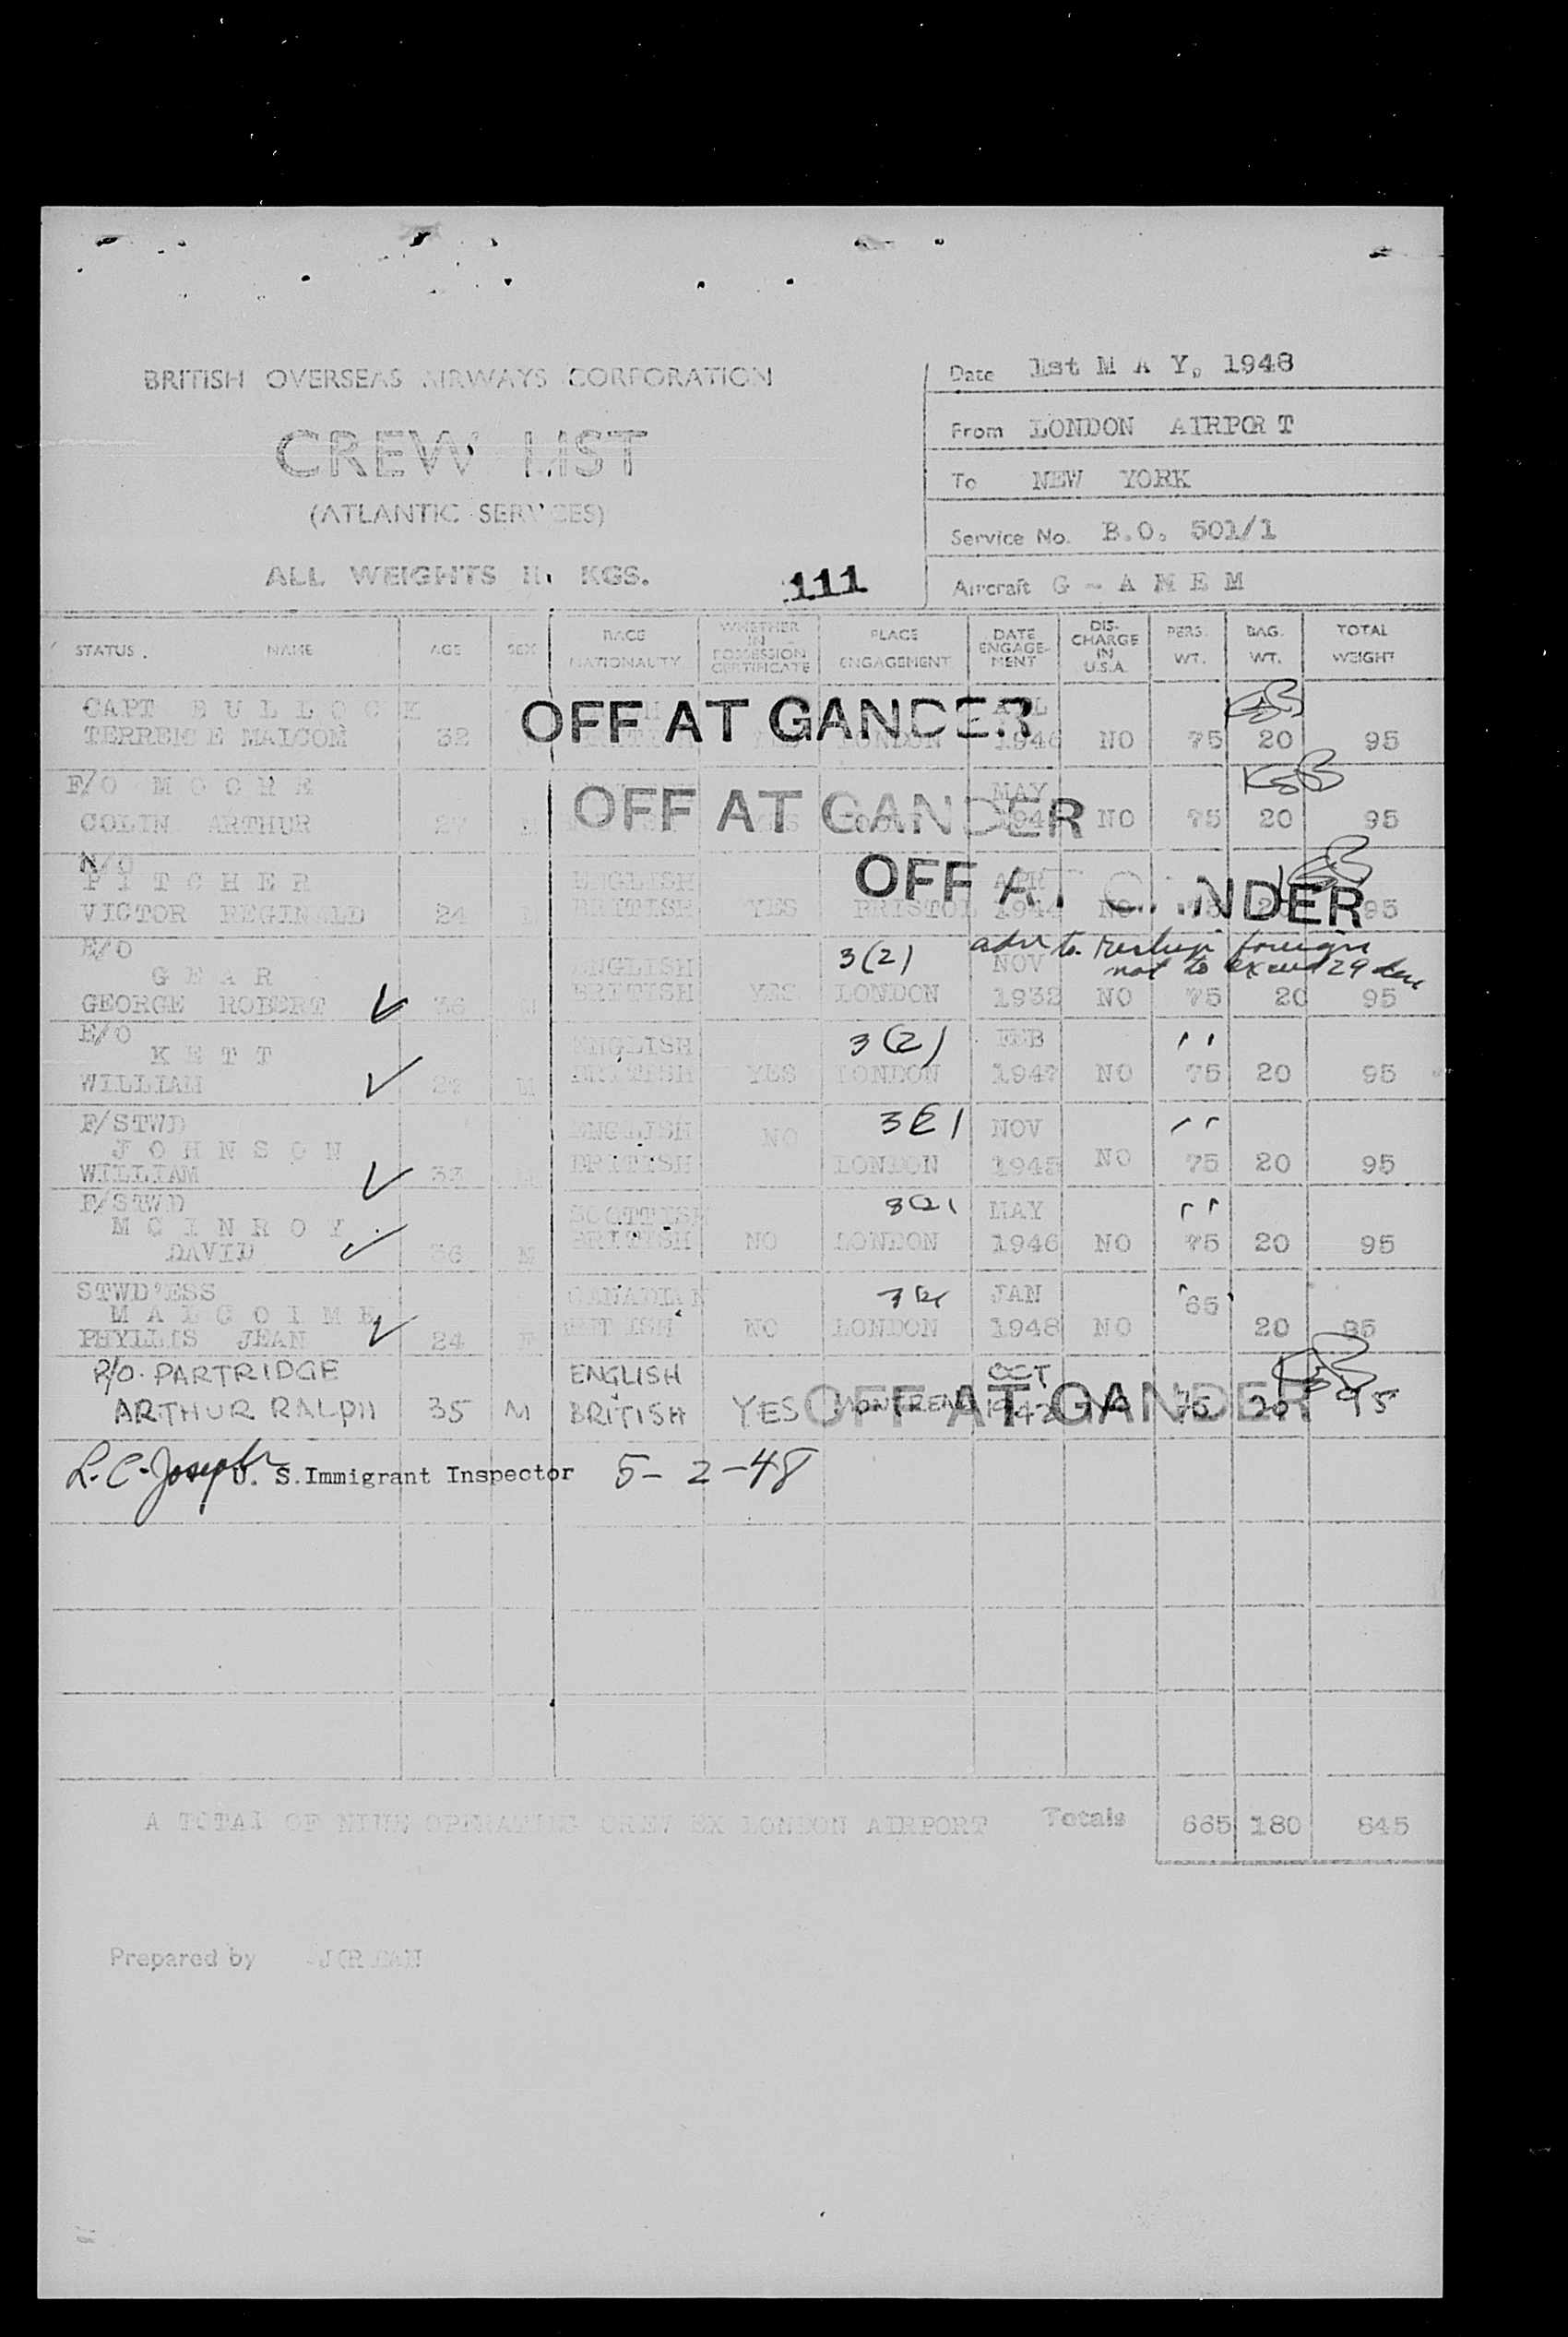 BRITISH OVERSEAS AIRWAYS CORPORATION
CREW LIST
(ATLANTIC SERVICES)
ALL WEIGHTS IN KGS.
111
Date 1st M A Y, 1948
From LONDON AIRPOR T
To NEW YORK
Service No. B.O. 501/1
Aircraft
STATUS. NAME AGE SEX RACE NATIONALITY WHETHER IN POSSESSION CERTIFICATE PLACE ENGAGEMENT DATE ENGAGE-MENT DIS-CHARGE IN U.S.A. PERS. WT. BAG. WT. TOTAL WEIGHT
CAPT B U L L O C K
TERRENCE MALCOM 32 LONDON 1946 NO 75 20 95
OFF AT GANDER
F/O M O O R E MAY
COLIN ARTHUR 27 M NO 75 20 95
OFF AT GANDER
N/O
P I T C H E R ENGLISH APR
VICTOR REGINALD 24 BRITISH YES BRISTOL 1944 NO 75 20 95
OFF AT GANDER
E/O
G E A R ENGLISH 3(2) NOV
not to exceed 29
GEORGE ROBERT 36 M BRITISH YES LONDON 1932 NO 75 20 95
E/O
K E T T ENGLISH 3(2) FEB " "
WILLIAM M BRITISH YES LONDON 1947 NO 75 20 95
F/STWD
J O H N S O N ENGLISH NO NOV
WILLIAM BRITISH LONDON NO 75 20 95
F/STWD
M C I N R O Y SCOTTISH MAY
DAVID 36 M BRITISH NO LONDON 1946 NO 75 20 95
STWD'ESS
CANADIAN JAN 65
PHYLLIS JEAN 24 F BRITISH NO LONDON 1948 NO 20
R/O. PARTRIDGE ENGLISH OCT
ARTHUR RALPH 35 M BRITISH YES MONTREAL NO 75 20 95
OFF AT GANDER
L. C. Joseph U. S. Immigrant Inspector 5-2-48
A TOTAL OF NINE OPERATING CREW EX LONDON AIRPORT Totals 665 180 845
Prepared by